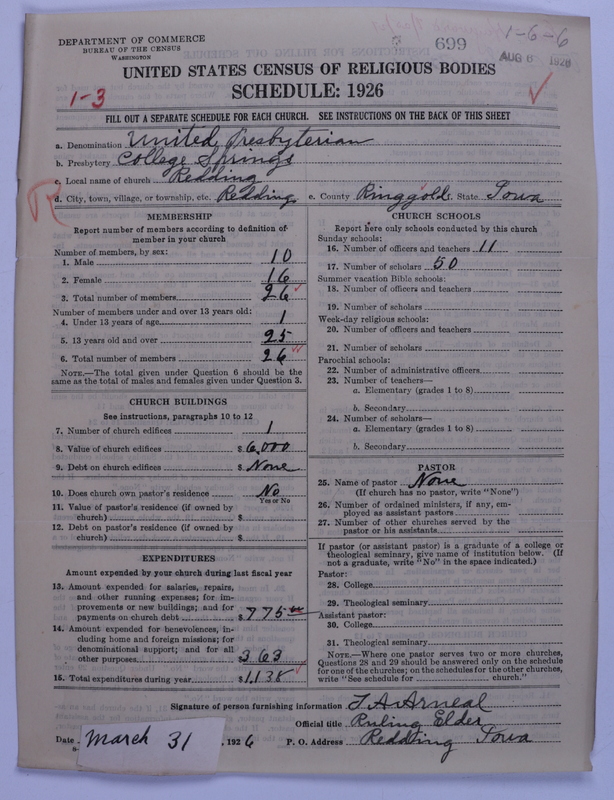 DEPARTMENT OF COMMERCE
BUREAU OF THE CENSUS
WASHINGTON
699
1-6-6
AUG 6 1926
UNITED STATES CENSUS OF RELIGIOUS BODIES
1-3
SCHEDULE: 1926
FILL OUT A SEPARATE SCHEDULE FOR EACH CHURCH. SEE INSTRUCTIONS ON THE BACK OF THIS SHEET
a. Denomination United Presbyterian
b. Presbytery College Springs
c. Local name of church Redding
d. City, town, village, or township, etc. Redding e. County Ringgold State Iowa
MEMBERSHIP
Report number of members according to definition of
member in your church
Number of members, by sex:
1. Male 10
2. Female 16
3. Total number of members 26
Number of members under and over 13 years old:
4. Under 13 years of age 1
5. 13 years old and over 25
6. Total number of members 26
NOTE.—The total given under Question 6 should be
same as the total of males and females given under Question 3.
CHURCH BUILDINGS
See instructions, paragraphs 10 to 12
7. Number of church edifices 1
8. Value of church edifices $ 6,000
9. Debt on church edifices $ None
10. Does church own pastor's residence No
Yes or No
11. Value of pastor's residence (if owned by
church) $
12. Debt on pastor's residence (if owned by
church) $
EXPENDITURES
Amount expended by your church during last fiscal year
13. Amount expended for salaries, repairs,
and other running expenses; for im-
provements or new buildings; and for
payments on church debt $ 775 00
14. Amount expended for benevolences, in-
cluding home and foreign missions; for
denominational support; and for all
other purposes $ 363
15. Total expenditures during year $ 1,138
CHURCH SCHOOLS
Report here only schools conducted by this church
Sunday schools:
16. Number of officers and teachers 11
17. Number of scholars 50
Summer vacation Bible schools:
18. Number of officers and teachers
19. Number of scholars
Week-day religious schools:
20. Number of officers and teachers
21. Number of scholars
Parochial schools:
22. Number of administrative officers
23. Number of teachers—
a. Elementary (grades 1 to 8)
b. Secondary
24. Number of scholars—
a. Elementary (grades 1 to 8)
b. Secondary
PASTOR
25. Name of pastor None
(If church has no pastor, write "None")
26. Number of ordained ministers, if any, em-
ployed as assistant pastors
27. Number of other churches served by the
pastor or his assistants
If pastor (or assistant pastor) is a graduate of a college or
theological seminary, give name of institution below. (If
not a graduate, write "No" in the space indicated.)
Pastor:
28. College
29. Theological seminary
Assistant pastor:
30. College
31. Theological seminary
NOTE.—Where one pastor serves two or more churches,
Questions 28 and 29 should be answered only on the schedule
for one of the churches; on the schedules for the other churches,
write "See schedule for church."
Signature of person furnishing information J A Arneal
Official title Ruling Elder
Date March 31, 1926 P. O. Address Redding Iowa